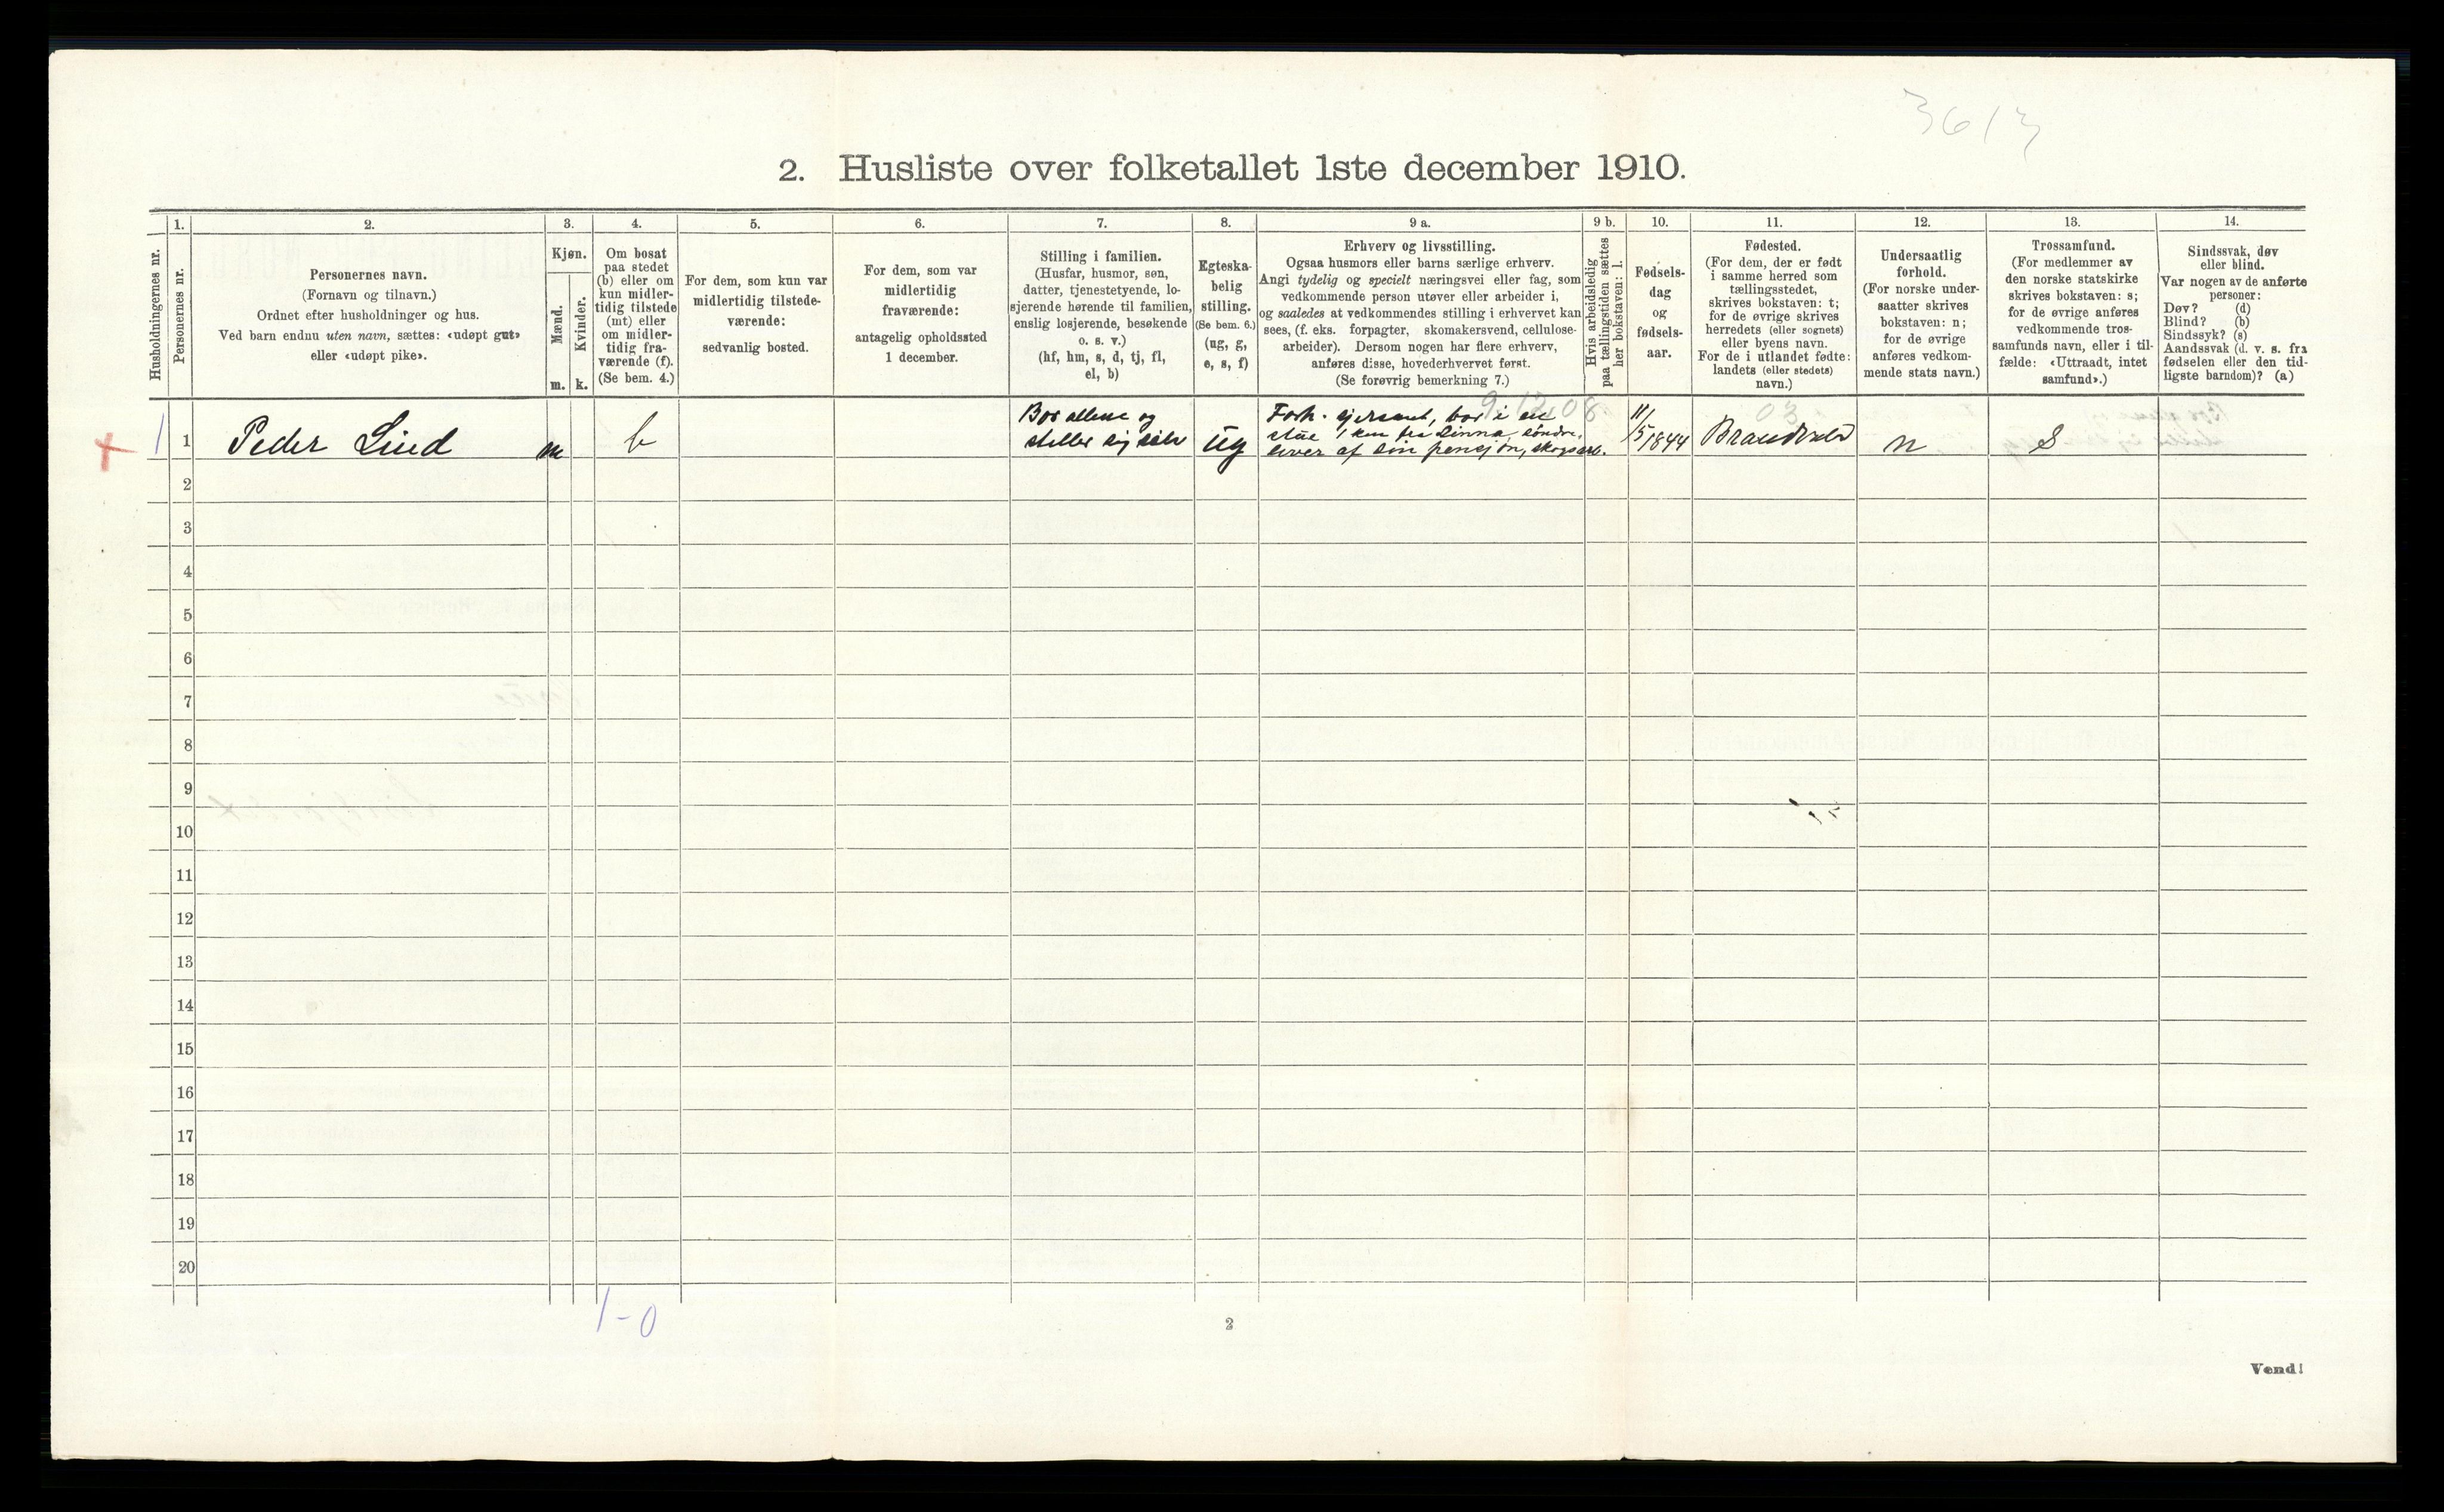 3613
2. Husliste over folketallet 1ste december 1910.
Husholdningernes nr.
1.
Personernes nr.
2.
Personernes navn.
(Fornavn og tilnavn.)
Ordnet efter husholdninger og hus.
Ved barn endnu uten navn, sættes: «udøpt gut»
eller «udøpt pike».
3.
Kjøn.
Mænd.
Kvinder.
m. k.
4.
Om bosat
paa stedet
(b) eller om
kun midler-
tidig tilstede
(mt) eller
om midler-
tidig fra-
værende (f).
(Se bem. 4.)
5.
For dem, som kun var
midlertidig tilstede-
værende:
sedvanlig bosted.
6.
For dem, som var
midlertidig
fraværende:
antagelig opholdssted
1 december.
7.
Stilling i familien.
(Husfar, husmor, søn,
datter, tjenestetyende, lo-
sjerende hørende til familien,
enslig losjerende, besøkende
o. s. v.)
(hf, hm, s, d, tj, fl,
el, b)
8.
Egteska-
belig
stilling.
(Se bem. 6.)
(ug, g,
e, s, f)
9 a.
Erhverv og livsstilling.
Ogsaa husmors eller barns særlige erhverv.
Angi tydelig og specielt næringsvei eller fag, som
vedkommende person utøver eller arbeider i,
og saaledes at vedkommendes stilling i erhvervet kan
sees, (f. eks. forpagter, skomakersvend, cellulose-
arbeider). Dersom nogen har flere erhverv,
anføres disse, hovederhvervet først.
(Se forøvrig bemerkning 7.)
9 b.
Hvis arbeidsledig
paa tællingstiden sættes
her bokstaven: l.
10.
Fødsels-
dag
og
fødsels-
aar.
11.
Fødested.
(For dem, der er født
i samme herred som
tællingsstedet,
skrives bokstaven: t;
for de øvrige skrives
herredets (eller sognets)
eller byens navn.
For de i utlandet fødte:
landets (eller stedets)
navn.)
12.
Undersaatlig
forhold.
(For norske under-
saatter skrives
bokstaven: n;
for de øvrige
anføres vedkom-
mende stats navn.)
13.
Trossamfund.
(For medlemmer av
den norske statskirke
skrives bokstaven: s;
for de øvrige anføres
vedkommende tros-
samfunds navn, eller i til-
fælde: «Uttraadt, intet
samfund».)
14.
Sindssvak, døv
eller blind.
Var nogen av de anførte
personer:
Døv? (d)
Blind? (b)
Sindssyk? (s)
Aandssvak (d. v. s. fra
fødselen eller den tid-
ligste barndom)? (a)
1
1
Peder Lind
m
b
Bor allene og
steller sig selv
ug
9.12.08
bor i en
stue 1 km fra Linna, söndre,
lever af sin pensjon, skogsarb.
11/5 1844
03
Brandval
n
S
2
3
4
5
6
7
8
9
10
11
12
13
14
15
16
17
18
19
20
1-0
2
Vend!